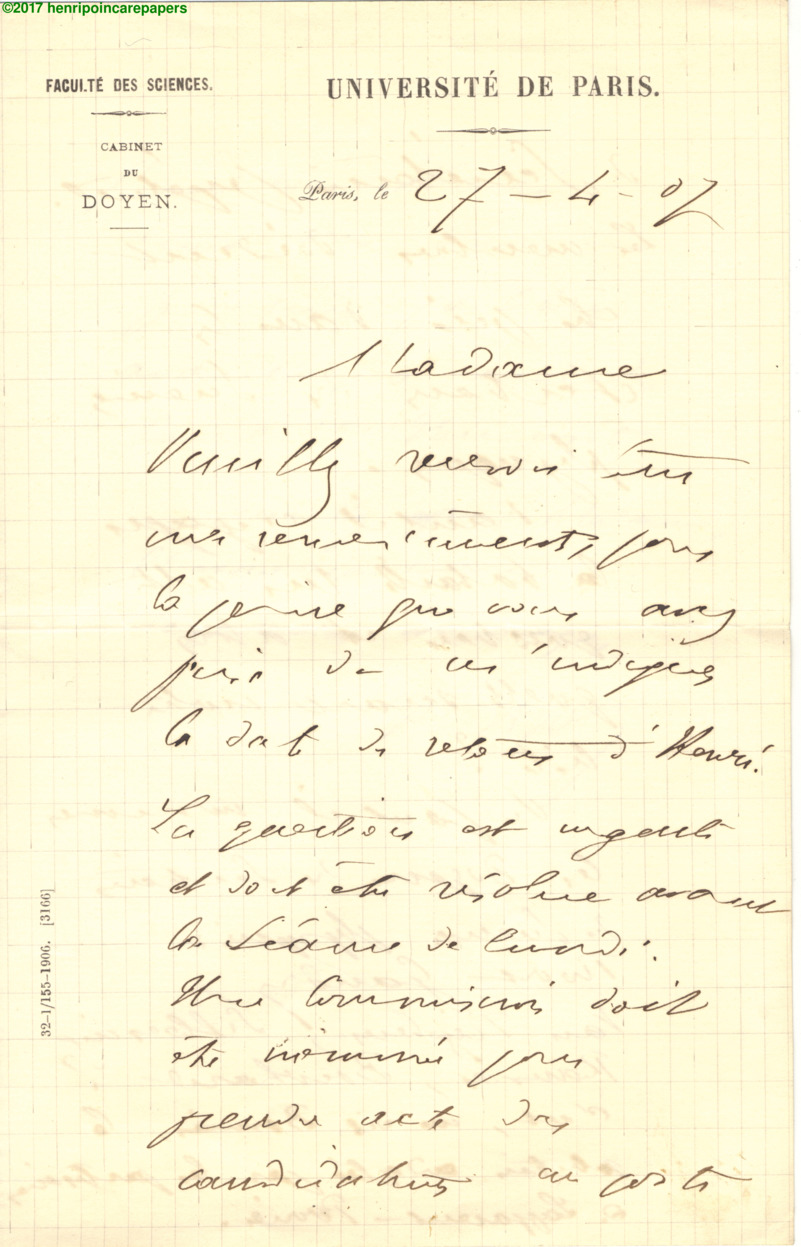 ©2017 henripoincarepapers
FACULTÉ DES SCIENCES.
UNIVERSITÉ DE PARIS.
CABINET
DU
DOYEN.
Paris, le 27 – 4 – 07
Madame
Veuillez recevoir tous
mes remerciements pour
la peine que vous avez
prise de m'indiquer
la date du retour d'Henri.
La question est urgente
et doit être résolue avant
la Séance de lundi.
Une Commission doit
être nommée pour
prendre acte des
candidatures au poste
32-1/155-1906. [3166]